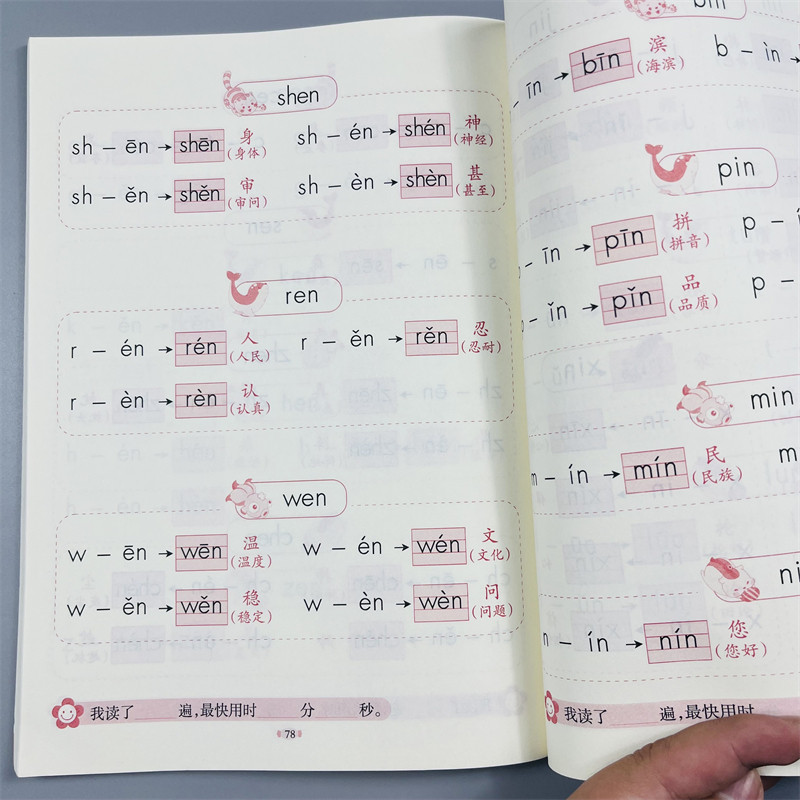 shen
sh – ēn → shēn 身 (身体) sh – én → shén 神 (神经)
sh – ěn → shěn 审 (审问) sh – èn → shèn 甚 (甚至)
ren
r – én → rén 人 (人民) r – ěn → rěn 忍 (忍耐)
r – èn → rèn 认 (认真)
wen
w – ēn → wēn 温 (温度) w – én → wén 文 (文化)
w – ěn → wěn 稳 (稳定) w – èn → wèn 问 (问题)
我读了 遍,最快用时 分 秒。
78
bin
– īn → bīn 滨 (海滨) b – ìn
pin
– īn → pīn 拼 (拼音) p – í
– ǐn → pǐn 品 (品质) p –
min
– ín → mín 民 (民族) m
ni
– ín → nín 您 (您好)
我读了 遍,最快用时